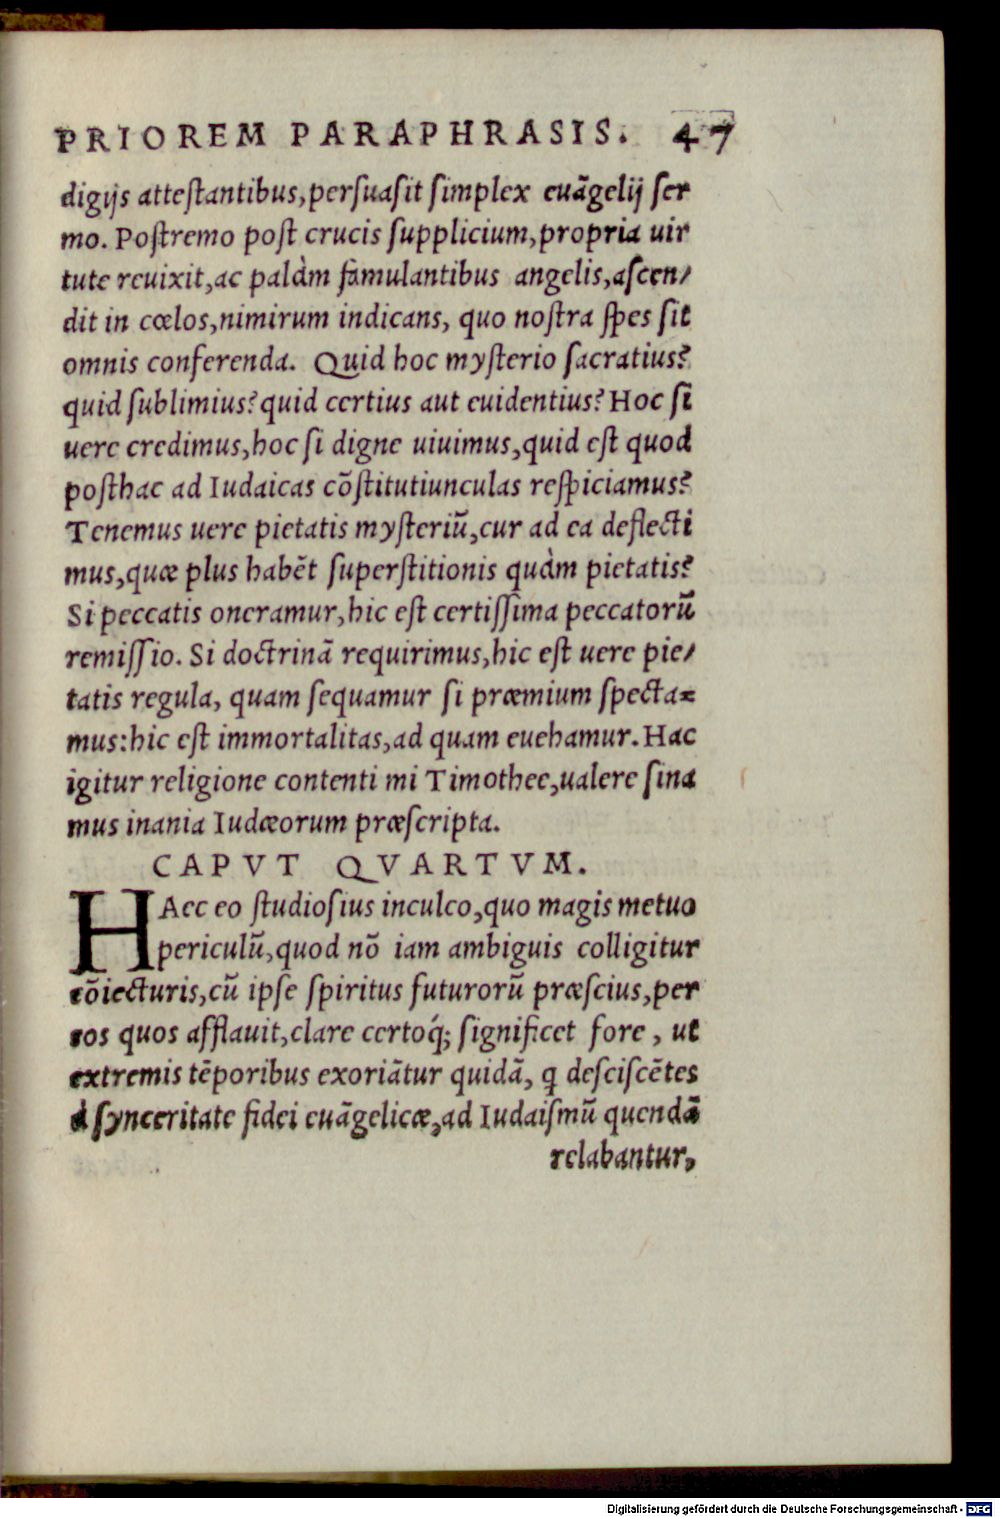 PRIOREM PARAPHRASIS. 47
digijs attestantibus, persuasit simplex euãgelij ser
mo. Postremo post crucis supplicium, propria uir
tute reuixit, ac palàm famulantibus angelis, ascen/
dit in cœlos, nimirum indicans, quo nostra spes sit
omnis conferenda. Quid hoc mysterio sacratius?
quid sublimius? quid certius aut euidentius? Hoc si
uere credimus, hoc si digne uiuimus, quid est quod
posthac ad Iudaicas cõstitutiunculas respiciamus?
Tenemus uere pietatis mysteriũ, cur ad ea deflecti
mus, quæ plus habẽt superstitionis quàm pietatis?
Si peccatis oneramur, hic est certissima peccatorũ
remissio. Si doctrinã requirimus, hic est uere pie/
tatis regula, quam sequamur si præmium specta=
mus: hic est immortalitas, ad quam euehamur. Hac
igitur religione contenti mi Timothee, ualere sina
mus inania Iudæorum præscripta.
CAPVT QVARTVM.
HAec eo studiosius inculco, quo magis metuo
periculũ, quod nõ iam ambiguis colligitur
cõiecturis, cũ ipse spiritus futurorũ præscius, per
eos quos afflauit, clare certoq́; significet fore, ut
extremis tẽporibus exoriãtur quidã, q desciscẽtes
à synceritate fidei euãgelicæ, ad Iudaismũ quendã
relabantur,
Digitalisierung gefördert durch die Deutsche Forschungsgemeinschaft - DFG